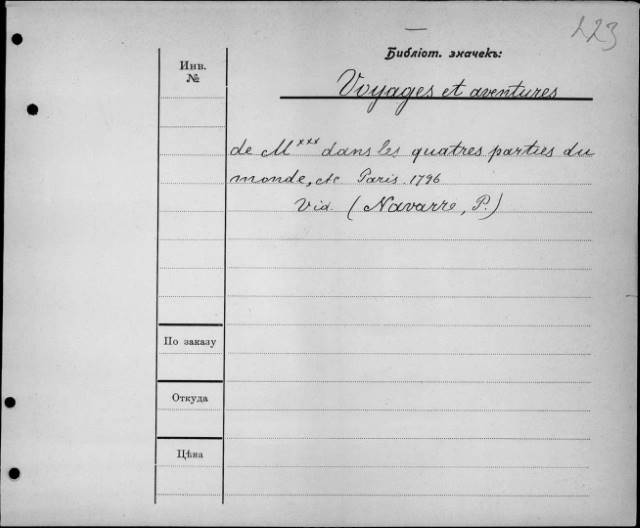 223
Библіот. значекъ:
Инв.
№
Voyages et aventures
de M xxx dans les quatres parties du
monde, etc Paris. 1796
Vid. (Navarre, P.)
По заказу
Откуда
Цѣна